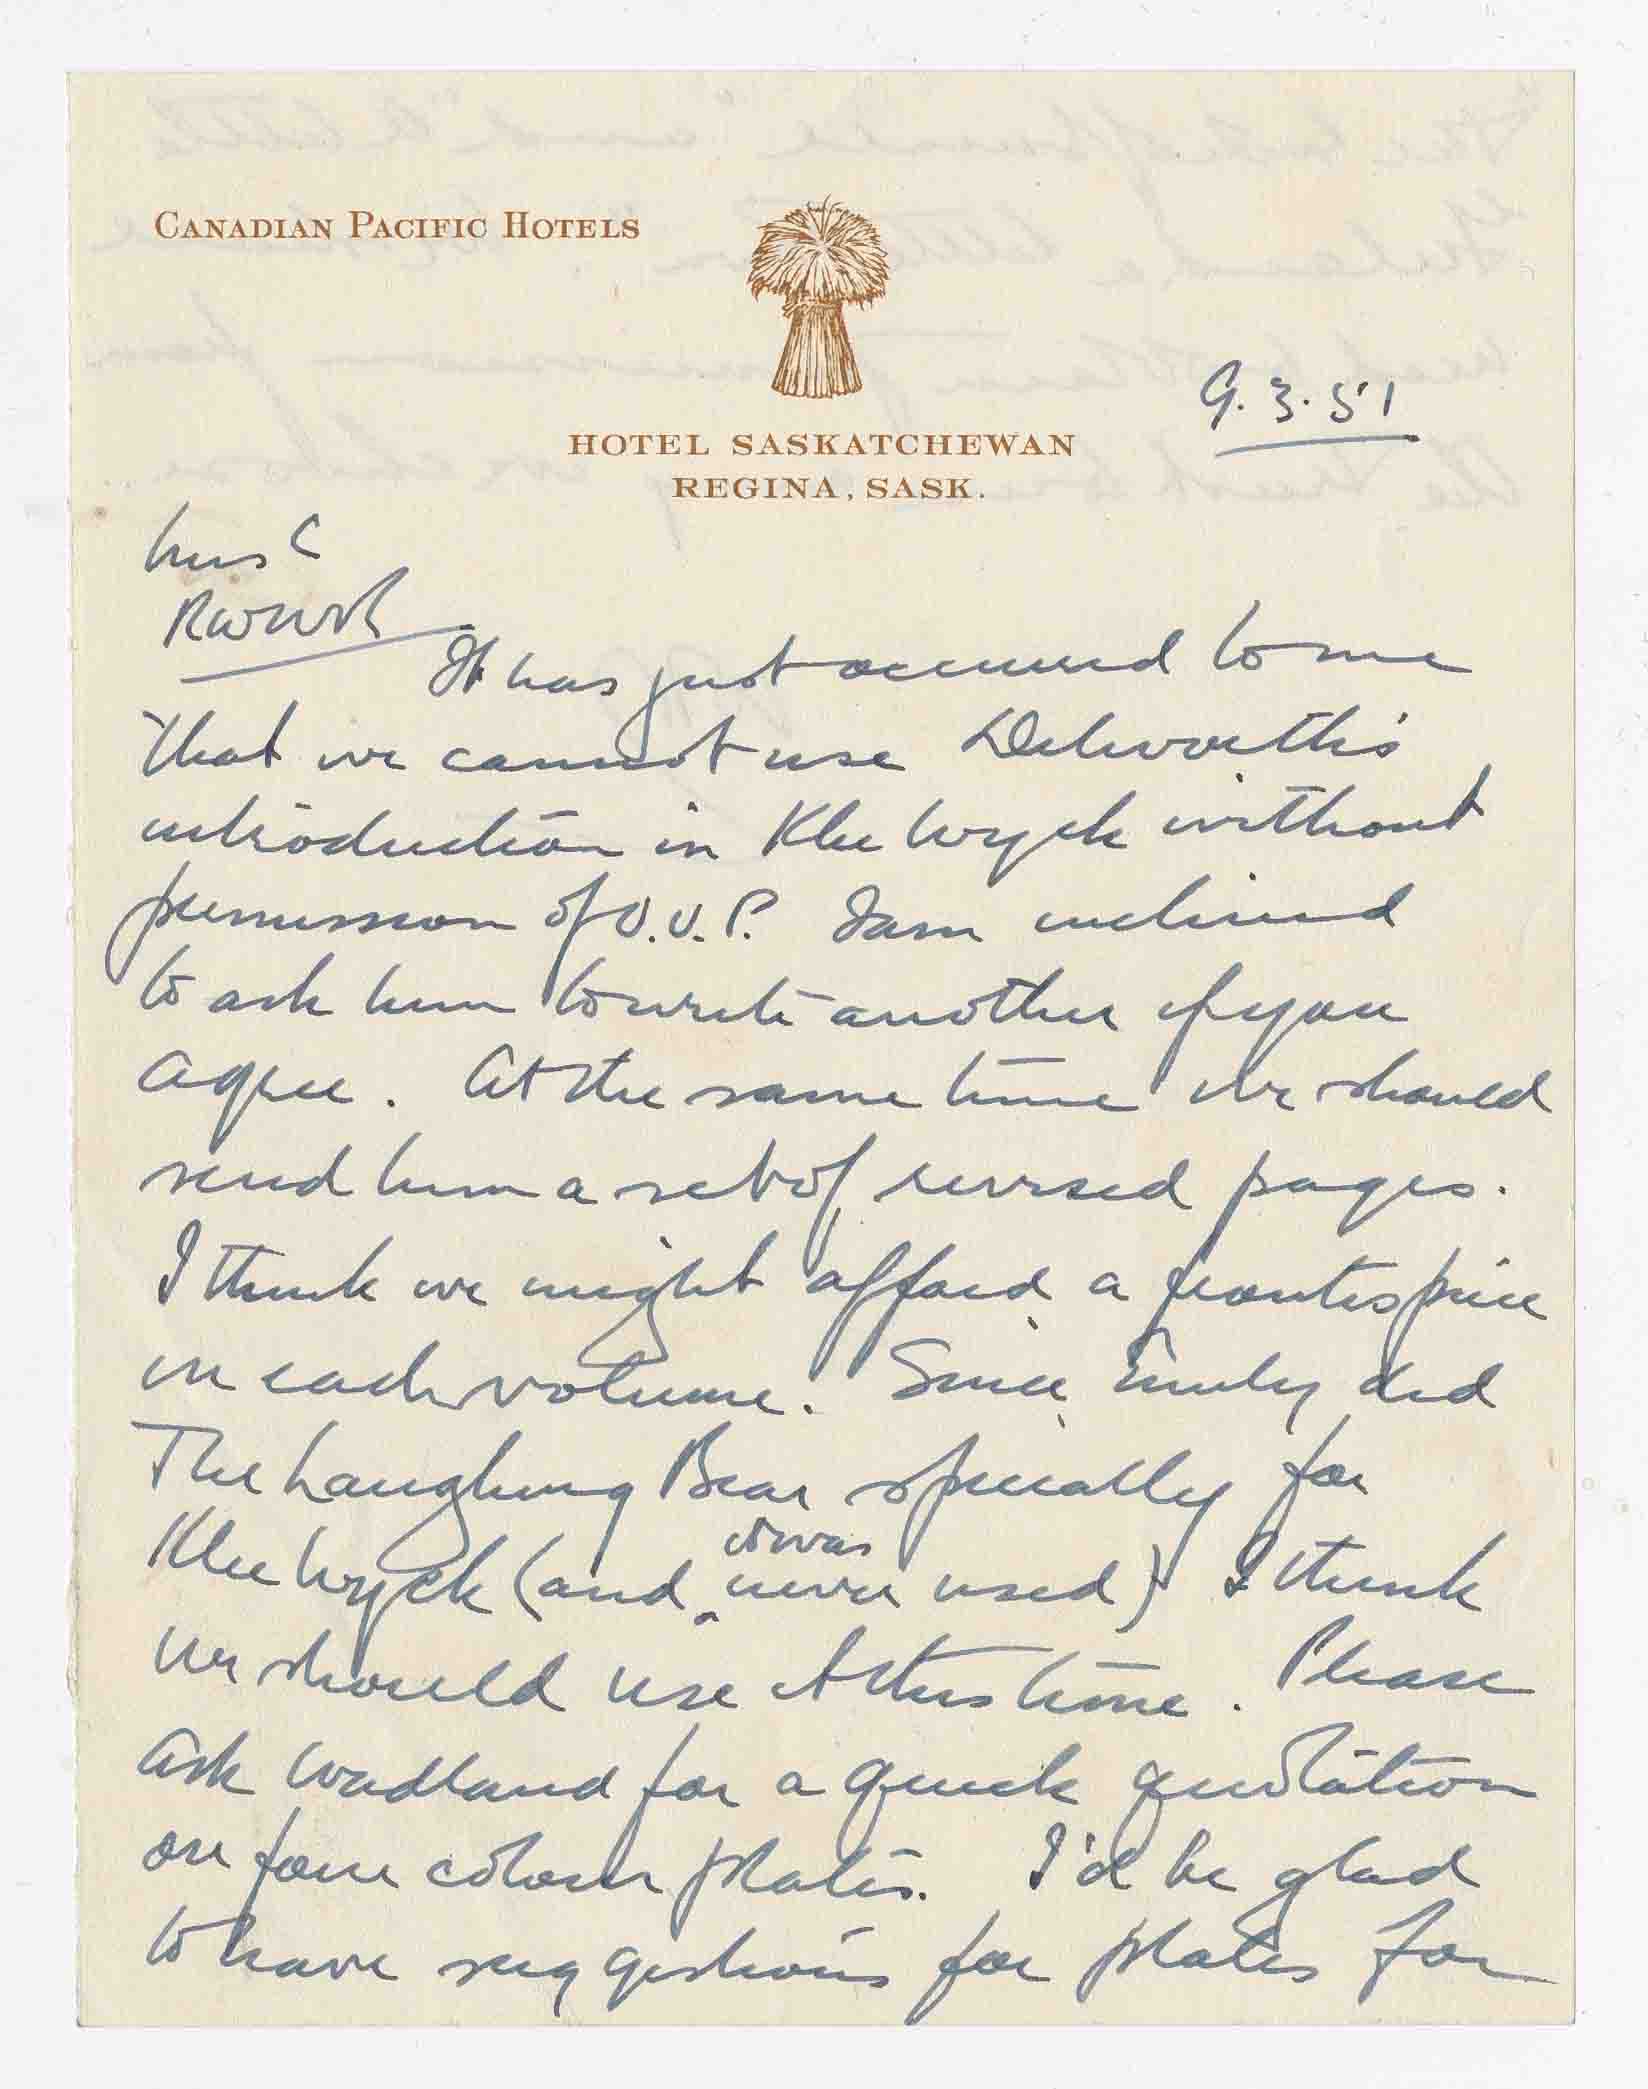 CANADIAN PACIFIC HOTELS
HOTEL SASKATCHEWAN
REGINA, SASK.
9.3.51
Miss C
RWWR
It has just occurred to me
that we cannot use Dilworth's
introduction in Klee Wyck without
permission of O.U.P. I am inclined
to ask him to write another if you
agree. At the same time we should
send him a set of revised pages.
I think we might afford a frontispiece
in each volume. Since Emily did
The Laughing Bear specially for
Klee Wyck (and it was never used) I think
we should use it this time. Please
ask Wadland for a quick quotation
on four colour plates. I'd be glad
to have suggestions for plates for